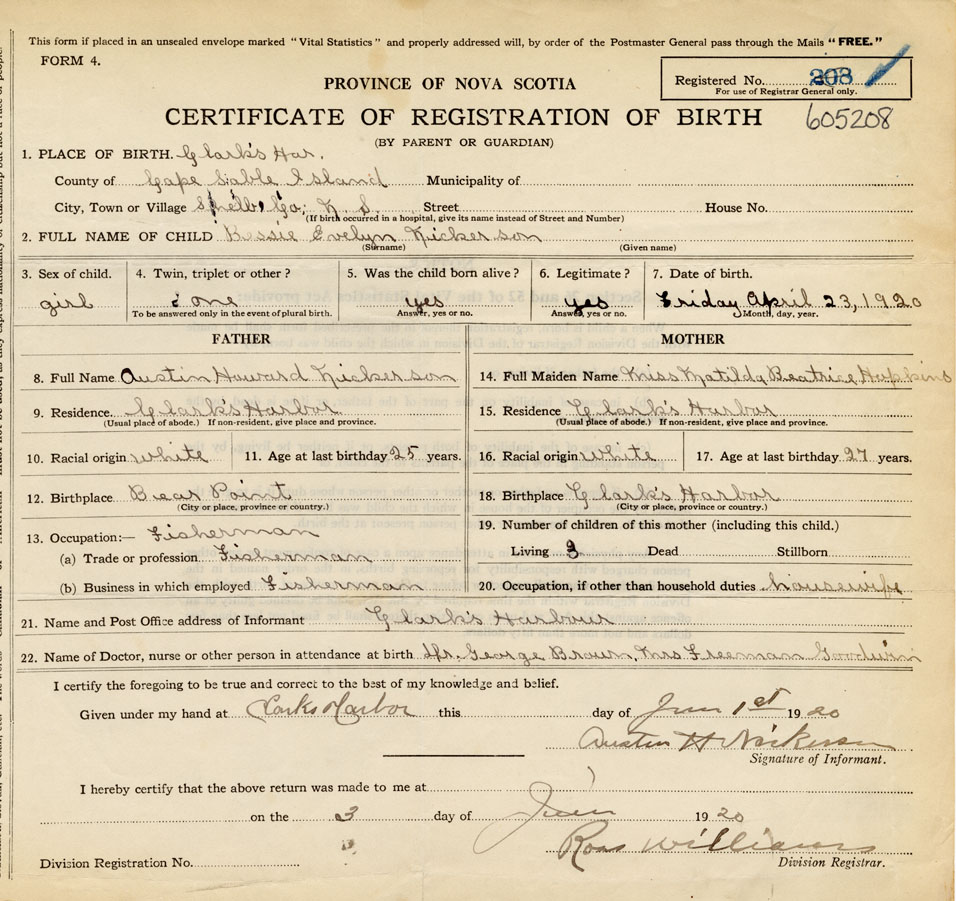 This form if placed in an unsealed envelope marked "Vital Statistics" and properly addressed will, by order of the Postmaster General pass through the Mails "FREE."
FORM 4.
Registered No. 203
For use of Registrar General only.
PROVINCE OF NOVA SCOTIA
CERTIFICATE OF REGISTRATION OF BIRTH
605208
(BY PARENT OR GUARDIAN)
1. PLACE OF BIRTH. Clark's Har.
County of Cape Sable Island Municipality of
City, Town or Village Shelb. Co; N. S. Street House No.
(If birth occurred in a hospital, give its name instead of Street and Number)
2. FULL NAME OF CHILD Bessie Evelyn Nickerson
(Surname) (Given name)
3. Sex of child. 4. Twin, triplet or other? 5. Was the child born alive? 6. Legitimate? 7. Date of birth.
girl one yes yes Friday April 23, 1920
To be answered only in the event of plural birth. Answer, yes or no. Answer, yes or no. Month, day, year.
FATHER MOTHER
8. Full Name Austin Howard Nickerson 14. Full Maiden Name Miss Matilda Beatrice Hopkins
9. Residence. Clarks Harbor 15. Residence Clark's Harbor
(Usual place of abode.) If non-resident, give place and province. (Usual place of abode.) If non-resident, give place and province.
10. Racial origin white 11. Age at last birthday 25 years. 16. Racial origin white 17. Age at last birthday 27 years.
12. Birthplace Bear Point 18. Birthplace Clark's Harbor
(City or place, province or country.) (City or place, province or country.)
13. Occupation:— Fisherman 19. Number of children of this mother (including this child.)
(a) Trade or profession Fisherman Living 3 Dead Stillborn
(b) Business in which employed Fisherman 20. Occupation, if other than household duties housewife
21. Name and Post Office address of Informant Clark's Harbour
22. Name of Doctor, nurse or other person in attendance at birth George Brown, Mrs Freeman Goodwin
I certify the foregoing to be true and correct to the best of my knowledge and belief.
Given under my hand at Clarks Harbor this day of June 1st 1920
Austin H Nickerson
Signature of Informant.
I hereby certify that the above return was made to me at
on the 3 day of June 1920
Ross Williams
Division Registration No. Division Registrar.